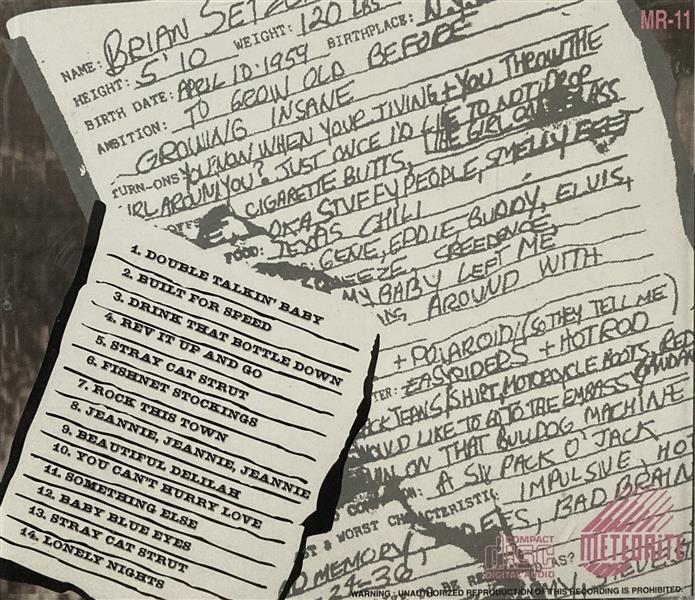 MR-11
NAME: BRIAN SETZER
HEIGHT: 5'10 WEIGHT: 120 LBS
BIRTH DATE: APRIL 10·1959 BIRTHPLACE: N.Y.
AMBITION: TO GROW OLD BEFORE
GROWING INSANE
TURN-ONS YOU KNOW WHEN YOUR JIVING + YOU THROW THE
GIRL AROUND YOU? JUST ONCE I'D LIKE TO NOT DROP
THE GIRL ON ASS
CIGARETTE BUTTS,
STUFFY PEOPLE, SMELLY FEET
FOOD: TEXAS CHILI
GENE, EDDIE, BUDDY, ELVIS, +
CREEDENCE,
MY BABY LEFT ME
AROUND WITH
+ POLAROID/(SO THEY TELL ME)
EASYRIDERS + HOTROD
BLACK JEANS, T SHIRT, MOTORCYCLE BOOTS, RED
WOULD LIKE TO GO TO THE EMBASSY
ON THAT BULLDOG MACHINE
A SIX PACK O' JACK
& WORST CHARACTERISTIC IMPULSIVE,
BAD BRAIN
MEMORY,
24-36
1. DOUBLE TALKIN' BABY
2. BUILT FOR SPEED
3. DRINK THAT BOTTLE DOWN
4. REV IT UP AND GO
5. STRAY CAT STRUT
6. FISHNET STOCKINGS
7. ROCK THIS TOWN
8. JEANNIE, JEANNIE, JEANNIE
9. BEAUTIFUL DELILAH
10. YOU CAN'T HURRY LOVE
11. SOMETHING ELSE
12. BABY BLUE EYES
13. STRAY CAT STRUT
14. LONELY NIGHTS
COMPACT
disc
DIGITAL AUDIO
METEORITE
WARNING : UNAUTHORIZED REPRODUCTION OF THIS RECORDING IS PROHIBITED.